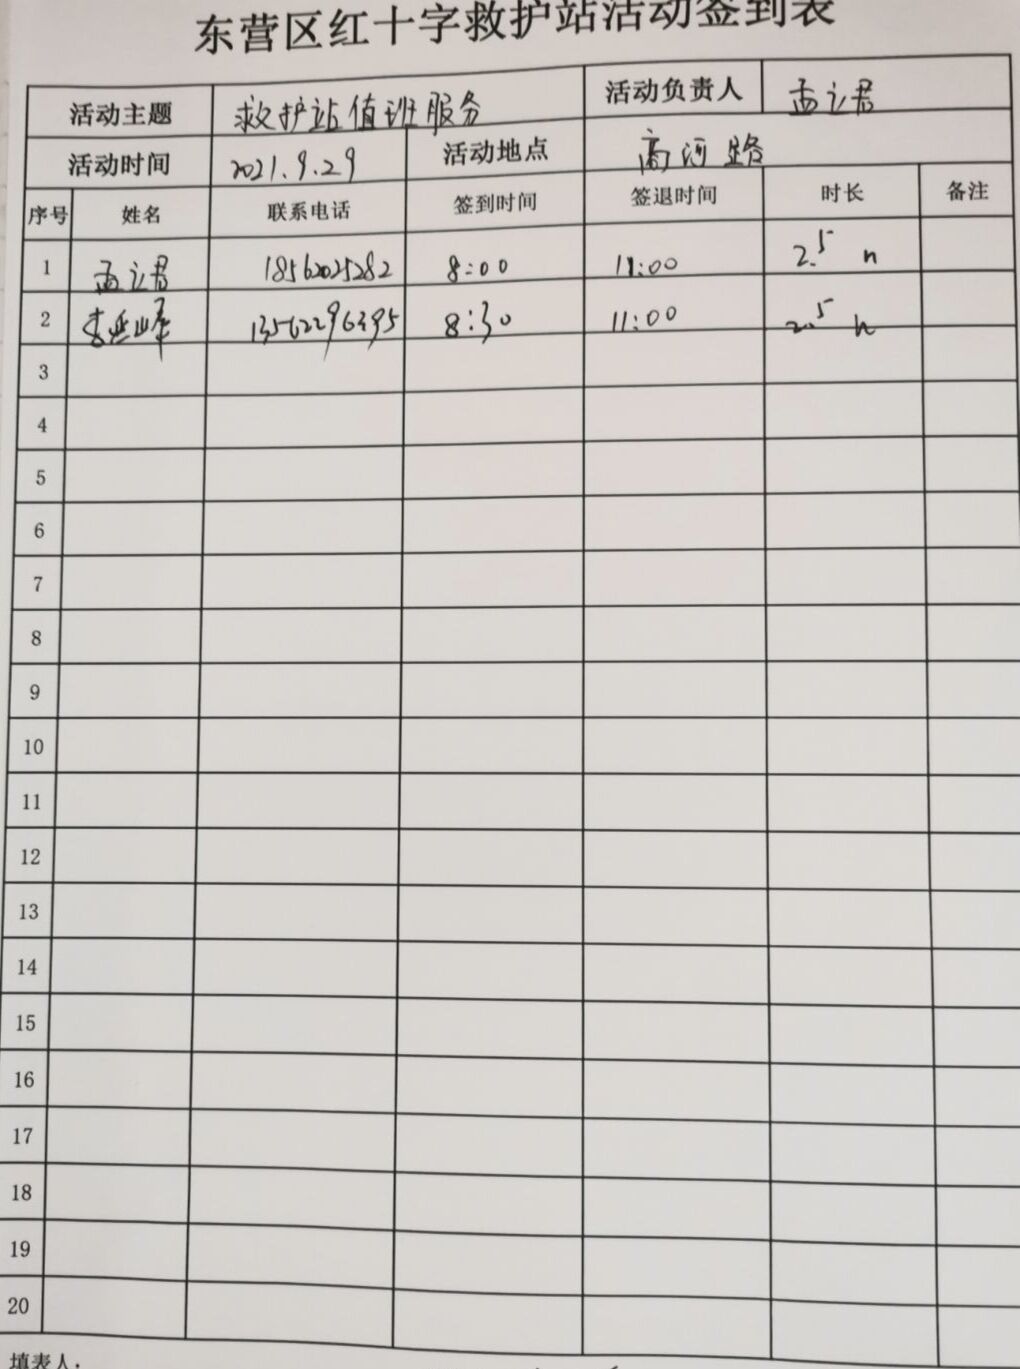 东营区红十字救护站活动签到表
活动主题 救护站值班服务 活动负责人 孟立君
活动时间 2021.9.29 活动地点 高河路
序号 姓名 联系电话 签到时间 签退时间 时长 备注
1 孟立君 18562025282 8:00 11:00 2.5 h
2 李延峰 13562296395 8:30 11:00 2.5 h
3
4
5
6
7
8
9
10
11
12
13
14
15
16
17
18
19
20
填表人: